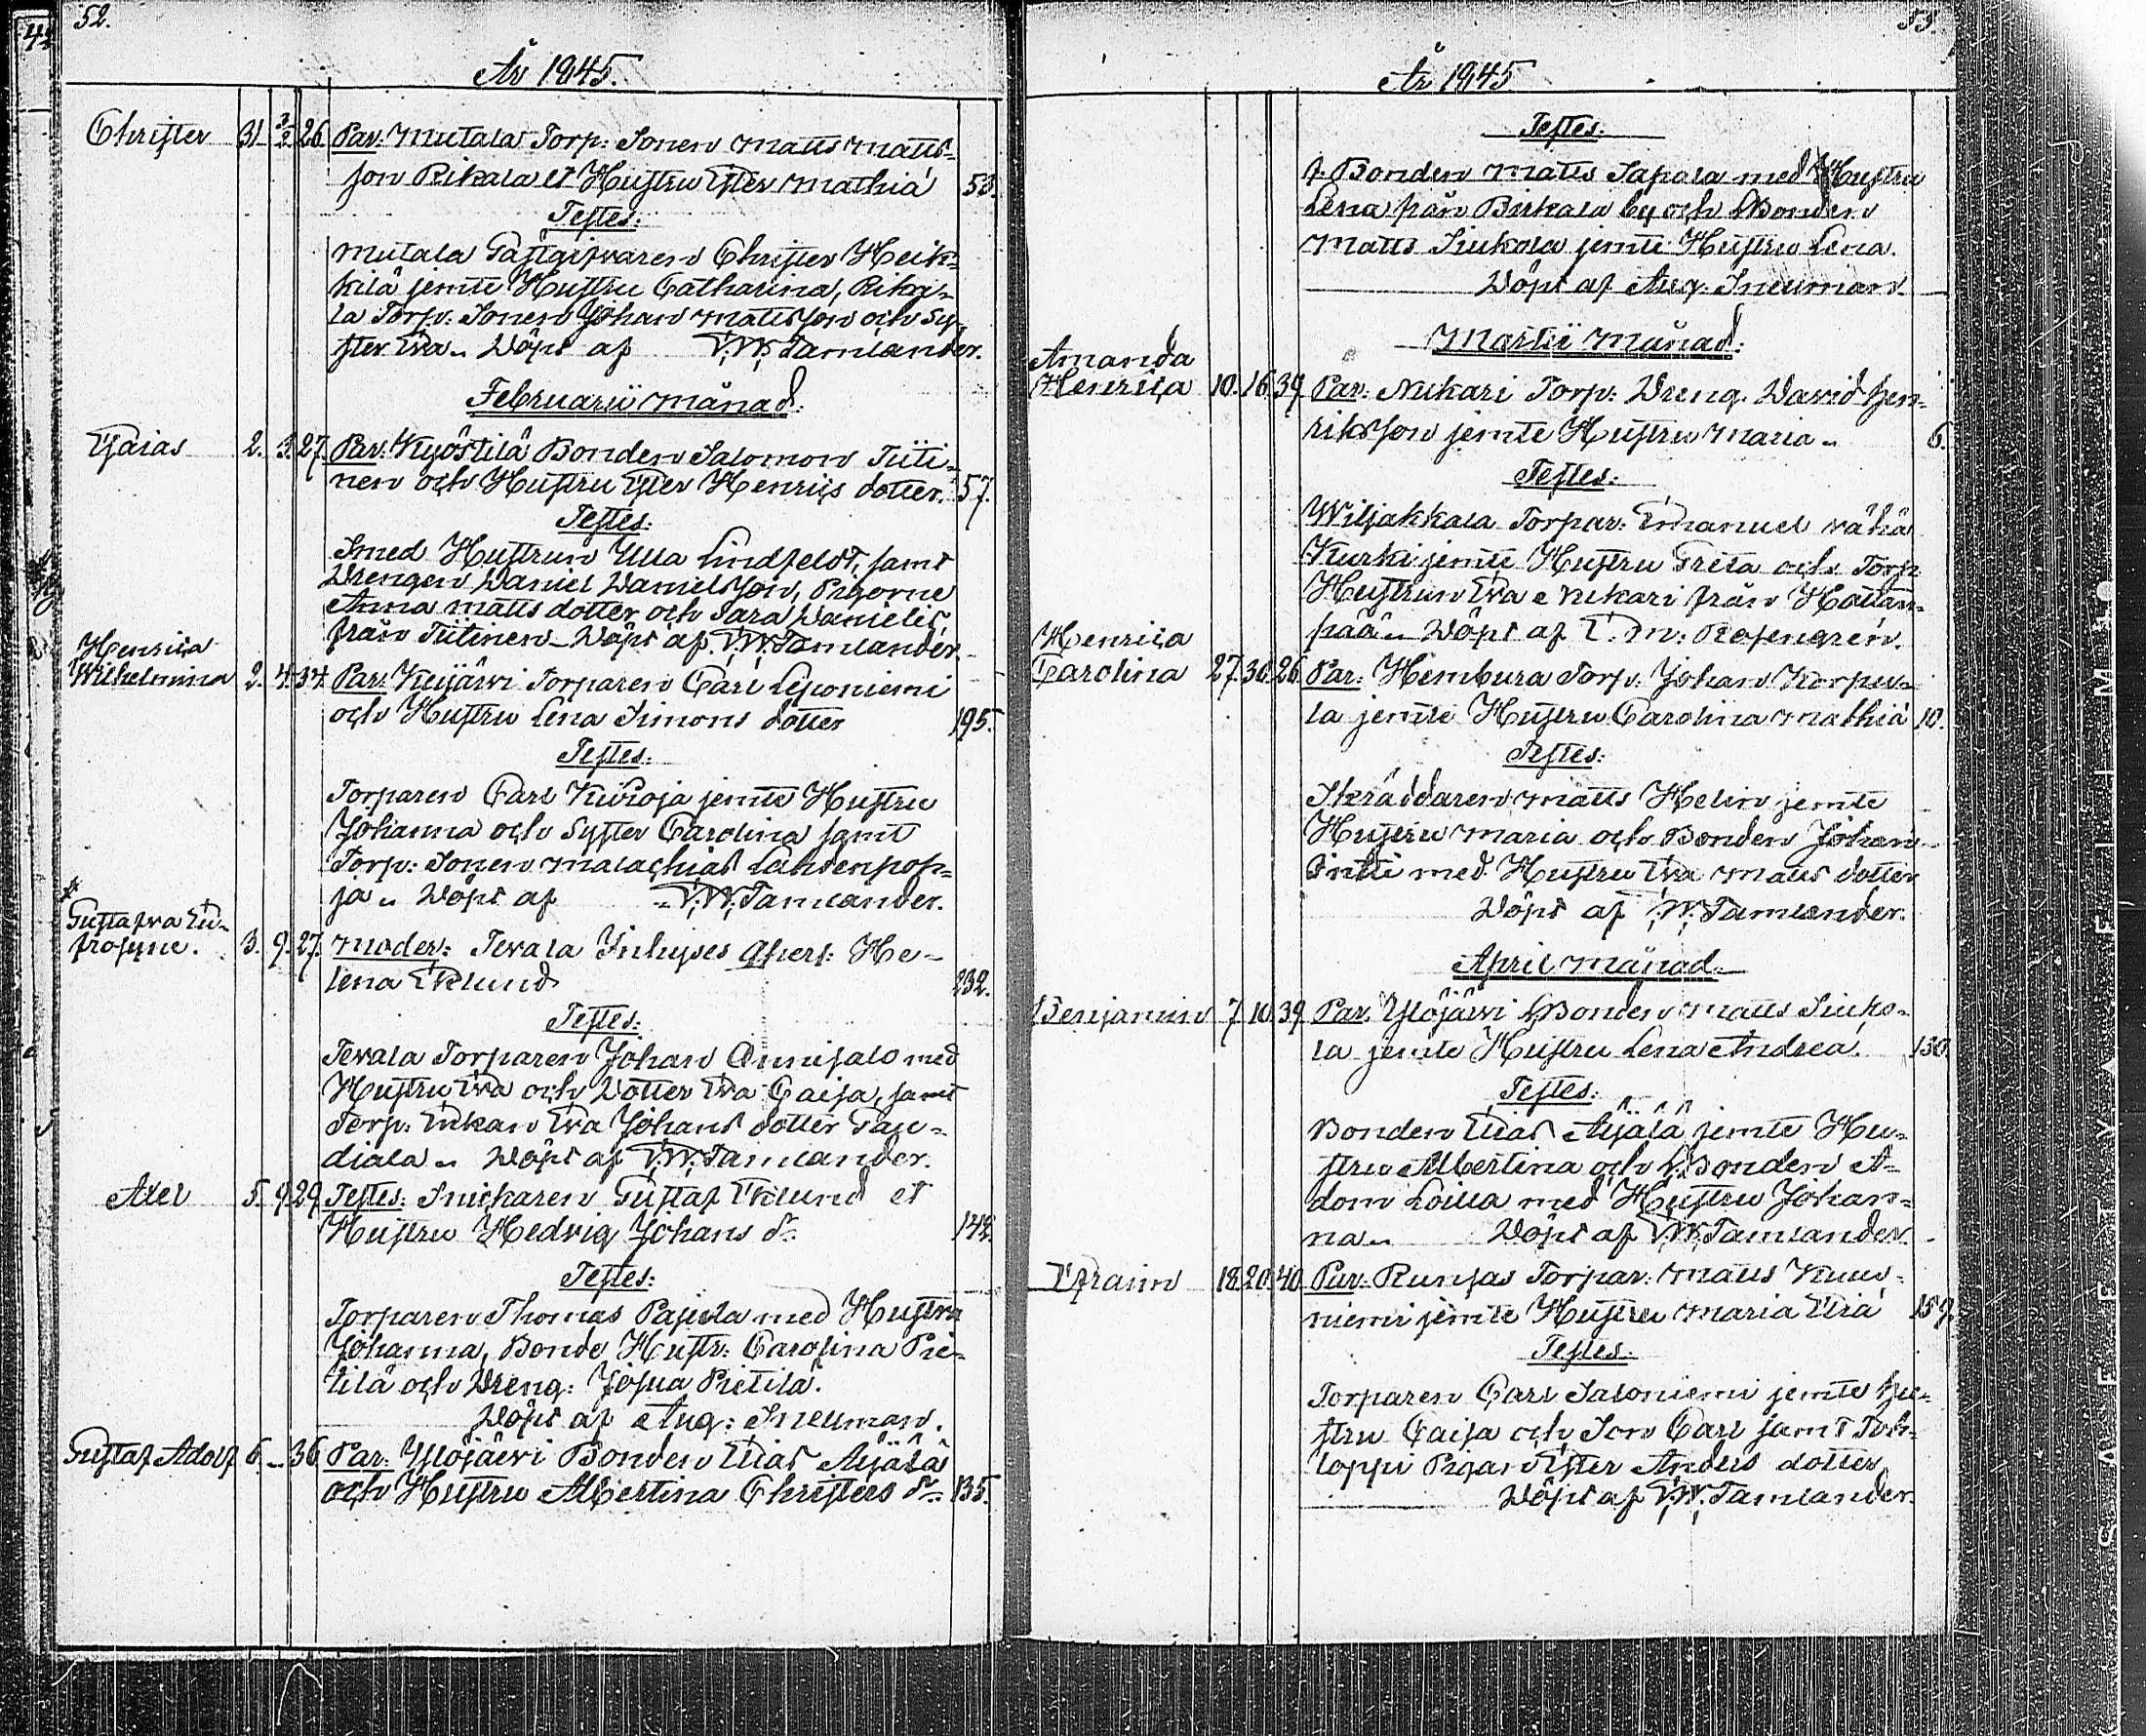 52.
År 1845.
Christer 31 3/2 26 Par: Mutala Torp: Sonen Matts Matts-
son Rikala et Hustru Ester Mathiä 53.
Testes:
Mutala Gästgifvaren Christer Heik-
kilä jemte Hustru Catharina, Rika-
la Torp: Sonen Johan Mattsson och Sy-
ster Eva. Döpt af F.W. Tamlander.
Februarii månad.
Esaias 2. 3. 27. Par: Kyöstilä Bonden Salomon Tiiti-
nen och Hustru Ester Henrics dotter. 57.
Testes:
Smed Hustrun Ulla Lindfeldt, samt
Drengen Daniel Danielsson, Pigorne
Anna Matts dotter och Sara Daniels
från Tiitinen. Döpt af F.W. Tamlander.
Henrica
Wilhelmina 2. 4. 34. Par: Keijärvi Torparen Carl Leponiemi
och Hustru Lena Simons dotter 195.
Testes:
Torparen Carl Kivioja jemte Hustru
Johanna och Syster Carolina samt
Torp: Sonen Malachias Lahdenpoh-
ja. Döpt af F.W. Tamlander.
Gustafva Eu-
frosyne. 3. 9. 27. Moder: Tevala Inhyses Qpers: He-
lena Eklund 232.
Testes:
Tevala Torparen Johan Annisalo med
Hustru Eva och Dotter Eva Caisa, samt
Torp: Enkan Eva Johans dotter Pan-
diala. Döpt af F.W. Tamlander.
Axel 5. 9. 29. Testes: Snickaren Gustaf Eklund et
Hustru Hedvig Johans dr. 144.
Testes:
Torparen Thomas Pajula med Hustru
Johanna, Bonde Hustr: Carolina Pie-
tilä och Dreng: Josua Pietilä.
Döpt af Aug: Sneuman.
Gustaf Adolf 6. – 36. Par: Ylöjärvi Bonden Elias Äijälä
och Hustru Albertina Christers dr. 135.
53.
År 1845
Testes:
f. Bonden Matts Sapala med Hustru
Lena från Birkala by och Bonden
Matts Siukola jemte Hustru Lena.
Döpt af Aug. Sneuman.
Martii Månad:
Amanda
Henrica 10. 16. 39. Par: Nukari Torp: Dreng. David Hen-
riksson jemte Hustru Maria. 6.
Testes:
Wiljakkala Torpar: Emanuel Vähä
Kurki jemte Hustru Greta och Torp
Hustrun Eva Nukari från Hattan-
pää. Döpt af C. M: Rosengrén.
Henrica
Carolina 27. 30. 26. Par: Hembura Torp: Johan Korpu-
la jemte Hustru Carolina Mathiä 10.
Testes:
Skräddaren Matts Helin jemte
Hustru Maria och Bonden Johan
Intti med Hustru Eva Matts dotter
Döpt af F.W. Tamlander.
April Månad.
Benjamin 7. 10. 39. Par. Ylöjärvi Bonden Matts Siuko-
la jemte Hustru Lena Andreä. 130.
Testes:
Bonden Elias Äijälä jemte Hu-
stru Albertina och Bonden A-
dam Loilla med Hustru Johan-
na. Döpt af F.W. Tamlander.
Efraim 18. 20. 40. Par: Runsas Torpar: Matts Kuus-
niemi jemte Hustru Maria Eliä 159.
Testes:
Torparen Carl Saloniemi jemte Hu-
stru Caisa och Son Carl samt Toh-
loppi Pigan Ester Anders dotter
Döpt af F.W. Tamlander.